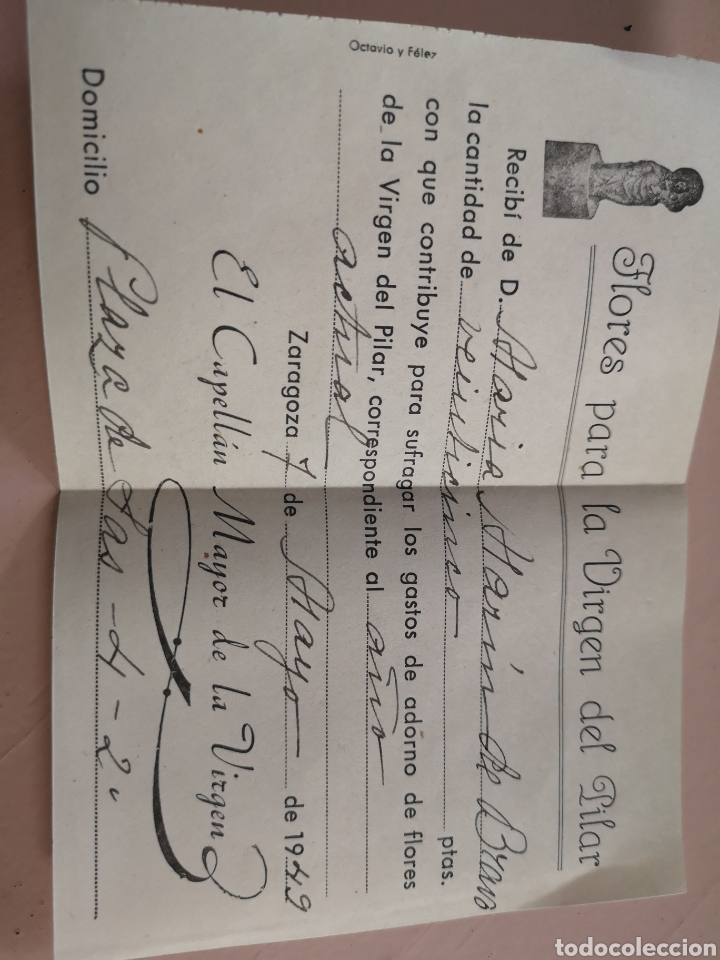 Flores para la Virgen del Pilar
Recibí de D. Maria Marín de Bravo
la cantidad de veinticinco ptas.
con que contribuye para sufragar los gastos de adorno de flores
de la Virgen del Pilar, correspondiente al año
actual
Zaragoza 7 de Mayo de 1949
El Capellán Mayor de la Virgen
Domicilio Plaza de Sas - 4 - 2º
Octavio y Félez
todocoleccion